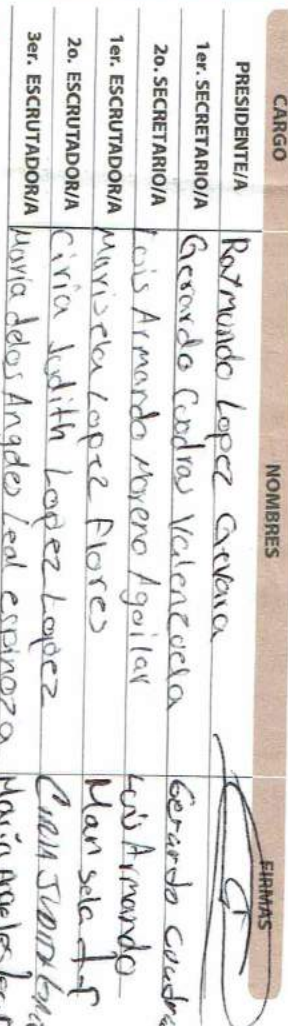 CARGO NOMBRES FIRMAS
PRESIDENTE/A Raymundo Lopez Gevara
1er. SECRETARIO/A Gerardo Coadras Valenzuela Gerardo Cuadra
2o. SECRETARIO/A Luis Armando Moreno Aguilar Luis Armando
1er. ESCRUTADOR/A Marisela Lopez Flores Marisela L F
2o. ESCRUTADOR/A Ciria Judith Lopez Lopez CIRIA JUDITH
3er. ESCRUTADOR/A Maria delos Angeles Leal espinoza Maria Angeles